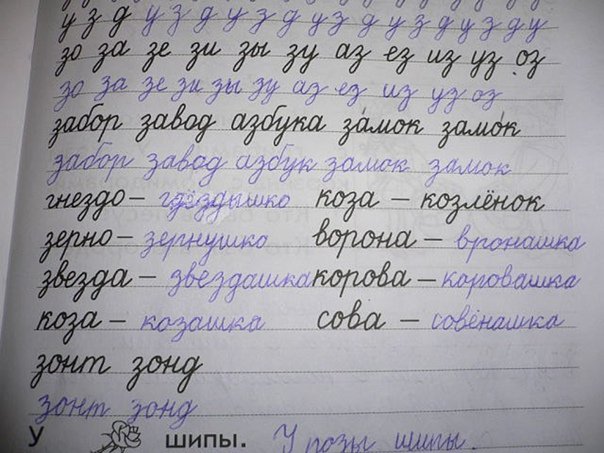 у з д у з д у з д у з д у з д у з д у з д у
зо за зе зи зы зу аз ез из уз оз
зо за зе зи зы зу аз ез из уз оз
забор завод азбука за́мок замо́к
забор завод азбук замок замок
гнездо – гдёздышко коза – козлёнок
зерно – зернушко ворона – вронашка
звезда – звездашка корова – коровашка
коза – козашка сова – совёнашка
зонт зонд
зонт зонд
У шипы. У розы шипы.